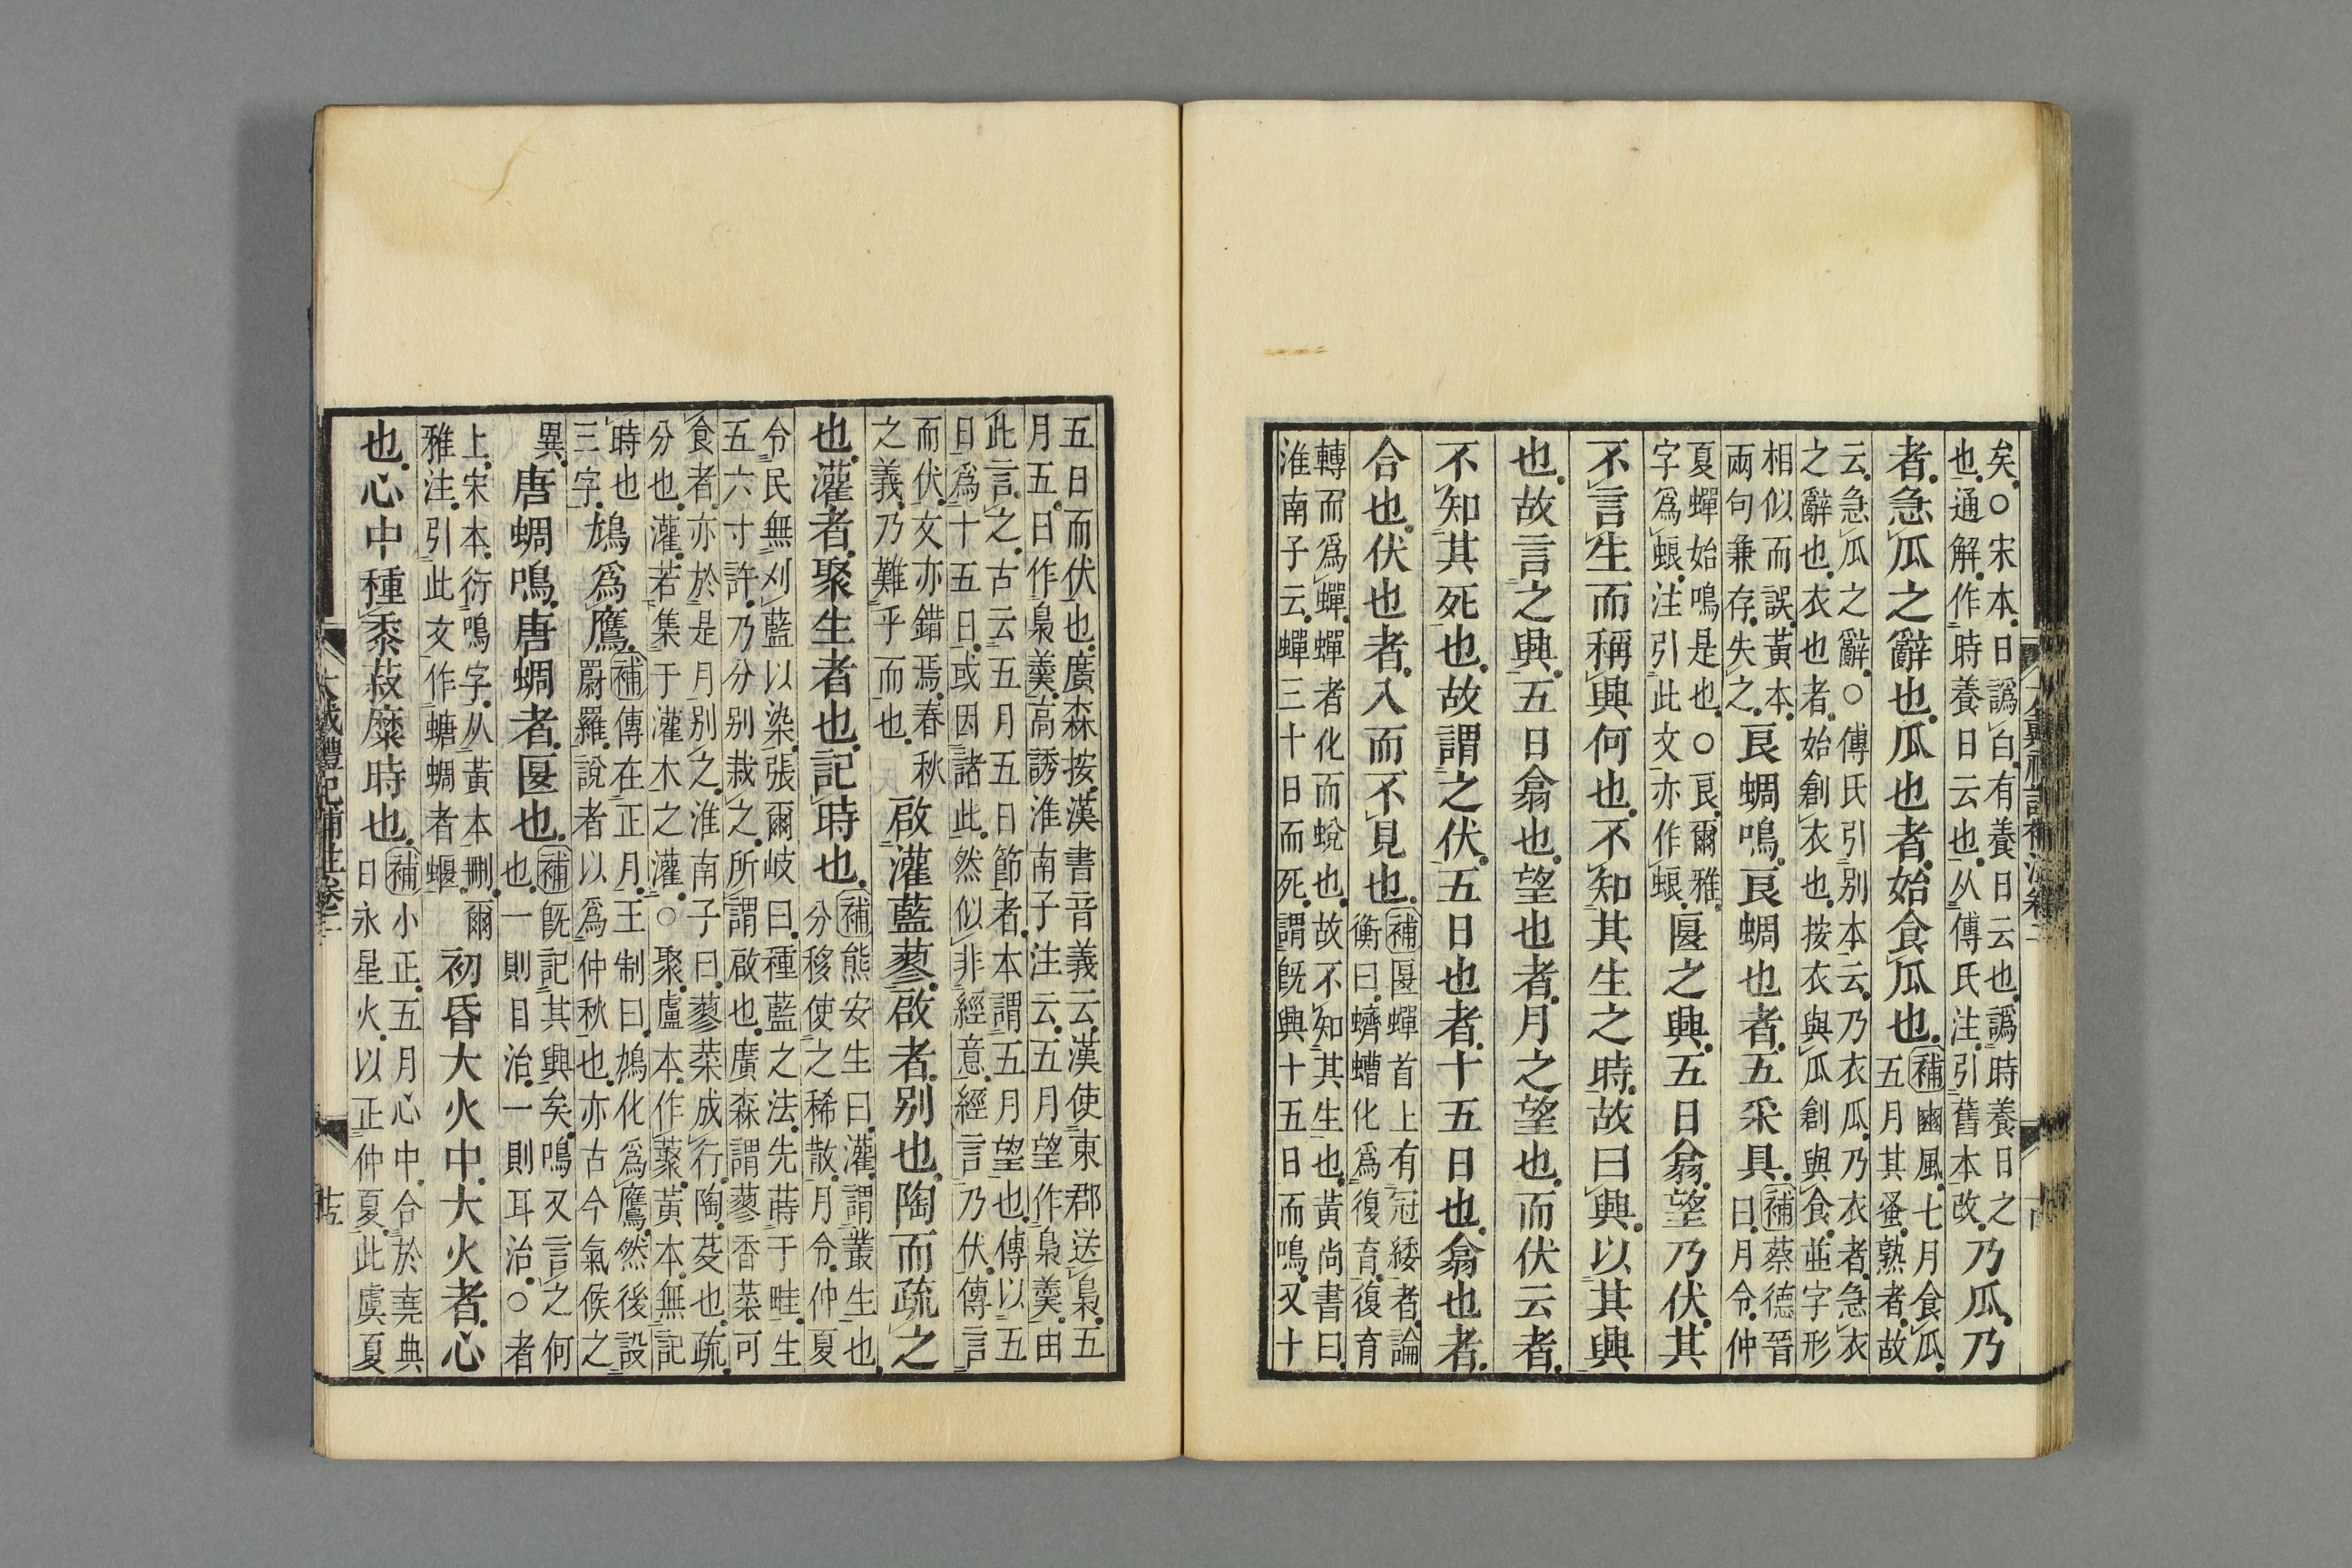 矣○宋本日譌白有養日云也譌時養日之
也通解作時養日云也从傅氏注引舊本改
乃瓜乃
者急瓜之辭也瓜也者始食瓜也
補豳風七月食瓜
五月其蚤熟者故
云急瓜之辭○傅氏引别本云乃衣瓜乃衣者急衣
之辭也衣也者始創衣也按衣與瓜創與食並字形
相似而誤黃本
兩句兼存失之
良蜩鳴良蜩也者五采具
補蔡德晉
曰月令仲
夏蟬始鳴是也○良爾雅
字爲蜋注引此文亦作蜋
匽之興五日翕望乃伏其
不言生而稱興何也不知其生之時故曰興以其興
也故言之興五日翕也望也者月之望也而伏云者
不知其死也故謂之伏五日也者十五日也翕也者
合也伏也者入而不見也
補匽蟬首上有冠緌者論
衡曰蠐螬化爲復育復育
轉而爲蟬蟬者化而蛻也故不知其生也黃尚書曰
淮南子云蟬三十日而死謂旣興十五日而鳴又十
五日而伏也廣森按漢書音義云漢使東郡送梟五
月五日作梟羹高誘淮南子注云五月望作梟羹由
此言之古云五月五日節者本謂五月望也傅以五
日爲十五日或因諸此然似非經意經言乃伏傳言
而伏文亦錯焉春秋
之義乃難乎而也
啟灌藍蓼啟者别也陶而疏之
也灌者聚生者也記時也
補熊安生曰灌謂叢生也
分移使之稀散月令仲夏
令民無刈藍以染張爾岐曰種藍之法先蒔于畦生
五六寸許乃分别栽之所謂啟也廣森謂蓼香菜可
食者亦於是月别之淮南子曰蓼菜成行陶菱也疏
分也灌若集于灌木之灌○聚盧本作藂黃本無記
時也
三字
鳩爲鷹
補傳在正月王制曰鳩化爲鷹然後設
罻羅說者以爲仲秋也亦古今氣候之
異
唐蜩鳴唐蜩者匽也
補旣記其興矣鳴又言之何
也一則目治一則耳治○者
上宋本衍鳴字从黃本刪爾
雅注引此文作螗蜩者蝘
初昏大火中大火者心
也心中種黍菽糜時也
補小正五月心中合於堯典
日永星火以正仲夏此虞夏
大戴禮記補注卷二